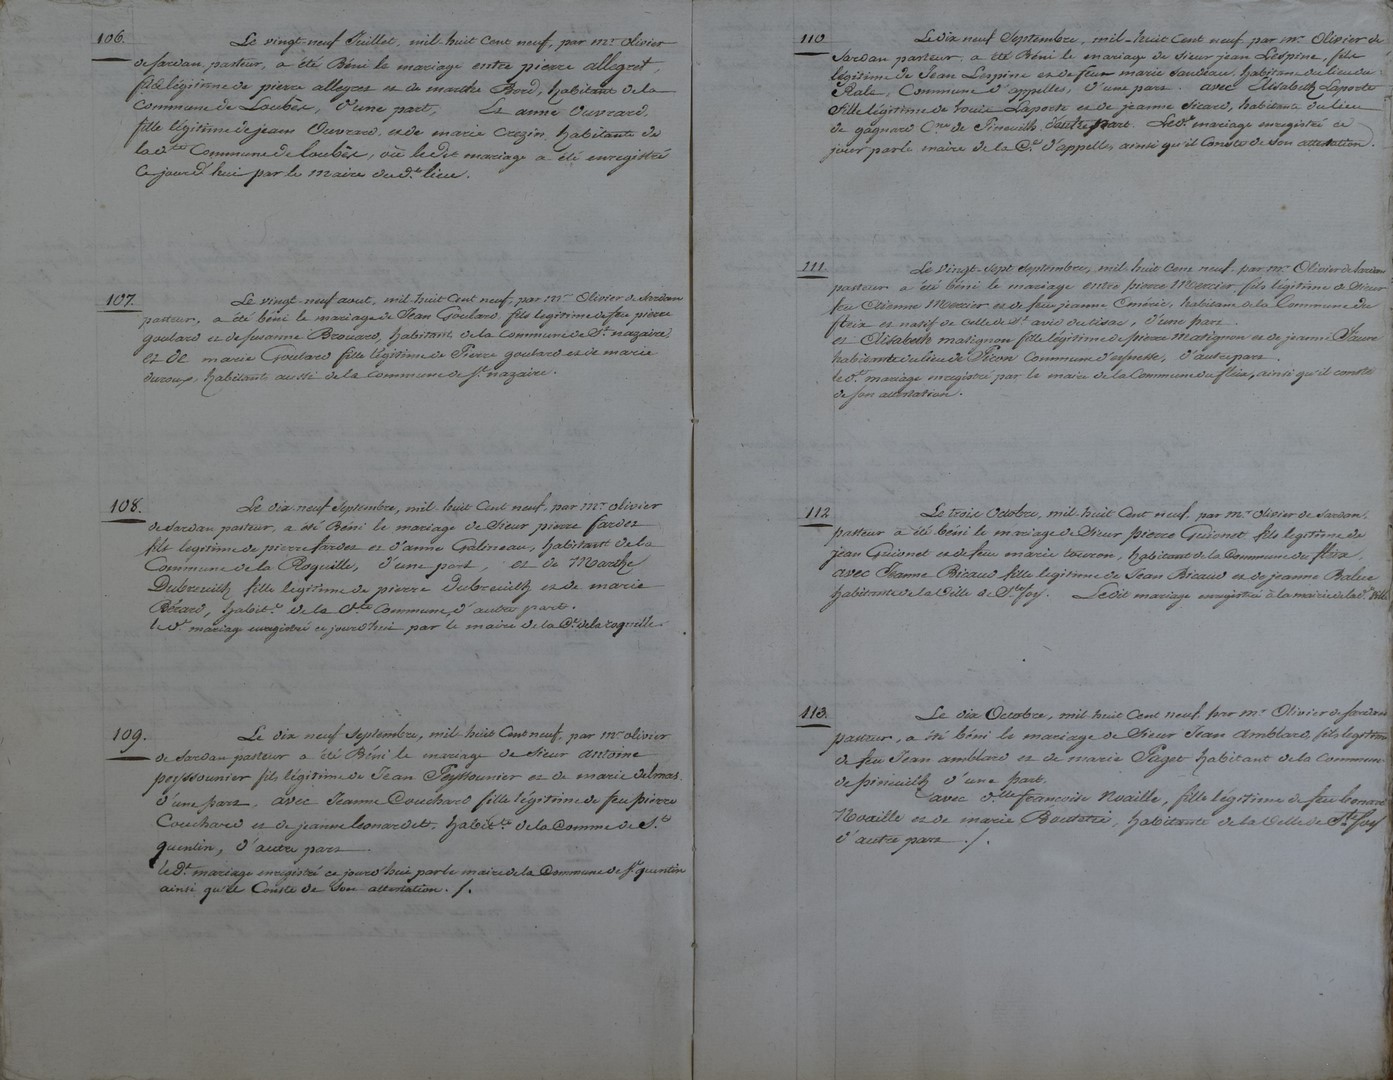 106.
Le vingt-neuf Juillet, mil-huit Cent neuf, par mr. Olivier
de Sardan, pasteur, a été Béni le mariage entre pierre allegret,
fils légitime de pierre allegret et de marthe Bord, habitant de la
Commune de Loubès, d'une part, Et anne Ouvrard,
fille légitime de jean Ouvrard, et de marie Crezin habitante de
la dte Commune de Loubès, où le dit mariage a été enregistré
Ce jourd'hui par le Maire du dt. lieu.
107.
Le vingt-neuf aout, mil-huit Cent neuf, par mr Olivier de Sardan
pasteur, a été béni le mariage de Jean Goulard fils légitime de feu pierre
goulard et de susanne Brouard, habitant de la commune de St. nazaire,
et de marie Goulard fille légitime de Pierre goulard et de marie
duroux, habitante aussi de la commune de St. nazaire.
108.
Le dix-neuf Septembre, mil-huit Cent neuf, par mr Olivier
de Sardan pasteur, a été Béni le mariage de Sieur pierre Jardez
fils légitime de pierre Jardez et d'anne Galineau, habitant de la
Commune de la Roquille, d'une part, et de Marthe
Dubreuilh fille légitime de pierre dubreuilh et de marie
Bérard, habite. de la dte Commune, d'autre part.
le dt. mariage enregistré ce jourd'hui par le maire de la Ce. de la roquille.
109.
Le dix neuf Septembre, mil-huit Cent neuf, par mr Olivier
de Sardan pasteur a été Béni le mariage de Sieur antoine
peyssounier fils légitime de Jean Peyssounier et de marie delmas.
d'une part, avec Jeanne Couchard fille légitime de feu pierre
Couchard et de jeanne leonardet, habitte de la Comme de St.
quentin, d'autre part
le dt. mariage enregistré ce jourd'hui par le maire de la Commune de St. quentin
ainsi qu'il Conste de Son attestation. /.
110
Le dix neuf Septembre, mil-huit Cent neuf par mr Olivier de
Sardan pasteur, a été Béni le mariage de Sieur jean Lespine, fils
légitime de Jean Lespine et de feue marie sauveau, habitant du lieu de
Rale, Commune d'appelles, d'une part. avec Elisabeth Laporte
fille légitime de Louis Laporte et de jeanne Sicard, habitante du lieu
de gagnard Cne de Pineuilh d'autre part. Le dt. mariage enregistré ce
jour par le maire de la Ce. d'appelles, ainsi qu'il Conste de Son attestation.
111
Le vingt-sept Septembre, mil-huit Cent neuf, par mr Olivier de Sardan
pasteur a été béni le mariage entre pierre Mercier fils légitime de Sieur
feu Etienne Mercier et de feu jeanne Eméric, habitant de la Commune du
fleix et natif de celle de St. avit du tisac, d'une part.
et Elisabeth matignon fille légitime de pierre Matignon et de jeanne Faure
habitante du lieu de Picon Commune d'eynesse, d'autre part
le dt. mariage enregistré par le maire de la Commune du fleix, ainsi qu'il conste
de son attestation.
112
Le trois Octobre, mil-huit Cent neuf, par mr Olivier de Sardan,
pasteur a été béni le mariage de Sieur pierre Guionet fils légitime de
jean Guionet et de feu marie touron, habitant de la Commune du fleix,
avec Jeanne Bicaud fille légitime de Jean Bicaud et de jeanne Balue
habitante de la Ville de Ste foy. Le dit mariage enregistré à la mairie de la de. Ville
113.
Le dix Octobre, mil-huit Cent neuf, par mr Olivier de Sardan
pasteur, a été béni le mariage de Sieur Jean amblard, fils légitime
de feu Jean amblard et de marie Paget habitant de la Commune
de pineuilh d'une part.
avec dlle françoise Noaille, fille légitime de feu Leonard
Noaille et de marie Boutitie, habitante de la Ville de Ste foy
d'autre part ./.